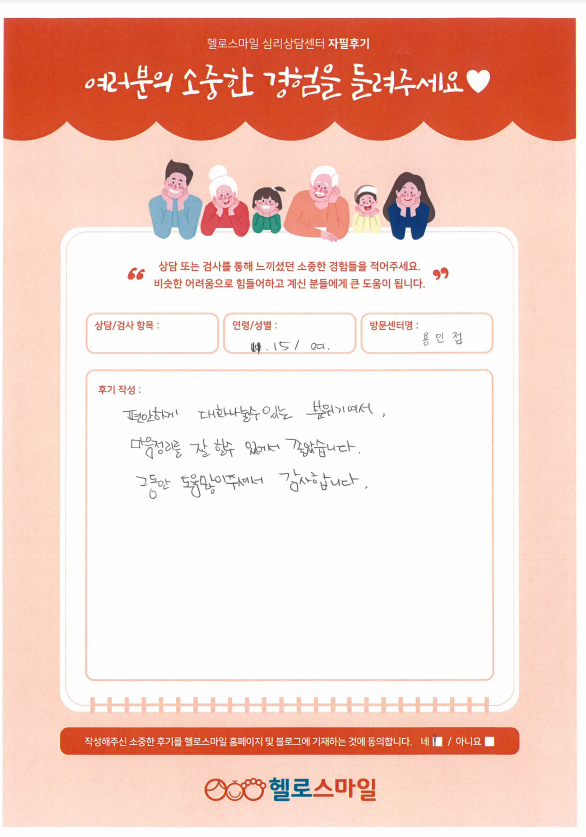 헬로스마일 심리상담센터 자필후기
여러분의 소중한 경험을 들려주세요
상담 또는 검사를 통해 느끼셨던 소중한 경험들을 적어주세요.
비슷한 어려움으로 힘들어하고 계신 분들에게 큰 도움이 됩니다.
상담/검사 항목 :
연령/성별 :
15 / 여.
방문센터명 :
용인점
후기 작성 :
편안하게 대화나눌수있는 분위기여서,
마음정리를 잘 할수 있어서 좋았습니다.
그동안 도움많이주셔서 감사합니다.
작성해주신 소중한 후기를 헬로스마일 홈페이지 및 블로그에 기재하는 것에 동의합니다. 네 / 아니요
헬로스마일